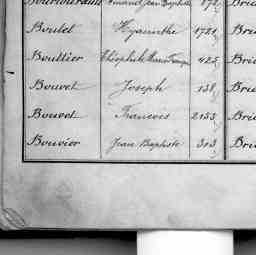 Amand Jean Baptiste 872 Bri
Boulet Hyacinthe 1721 Bri
Boullier Théophile 425 Bri
Bouvet Joseph 138 Bri
Bouvet Francois 2155 Bri
Bouvier Jean Baptiste 313 Bri